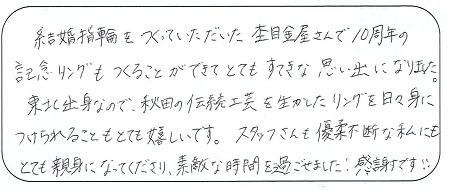 結婚指輪をつくっていただいた杢目金屋さんで10周年の
記念リングもつくることができてとてもすてきな思い出になりました。
東北出身なので、秋田の伝統工芸を生かしたリングを日々身に
つけられることもとても嬉しいです。スタッフさんも優柔不断な私にも
とても親身になってくださり、素敵な時間を過ごせました!感謝です!!